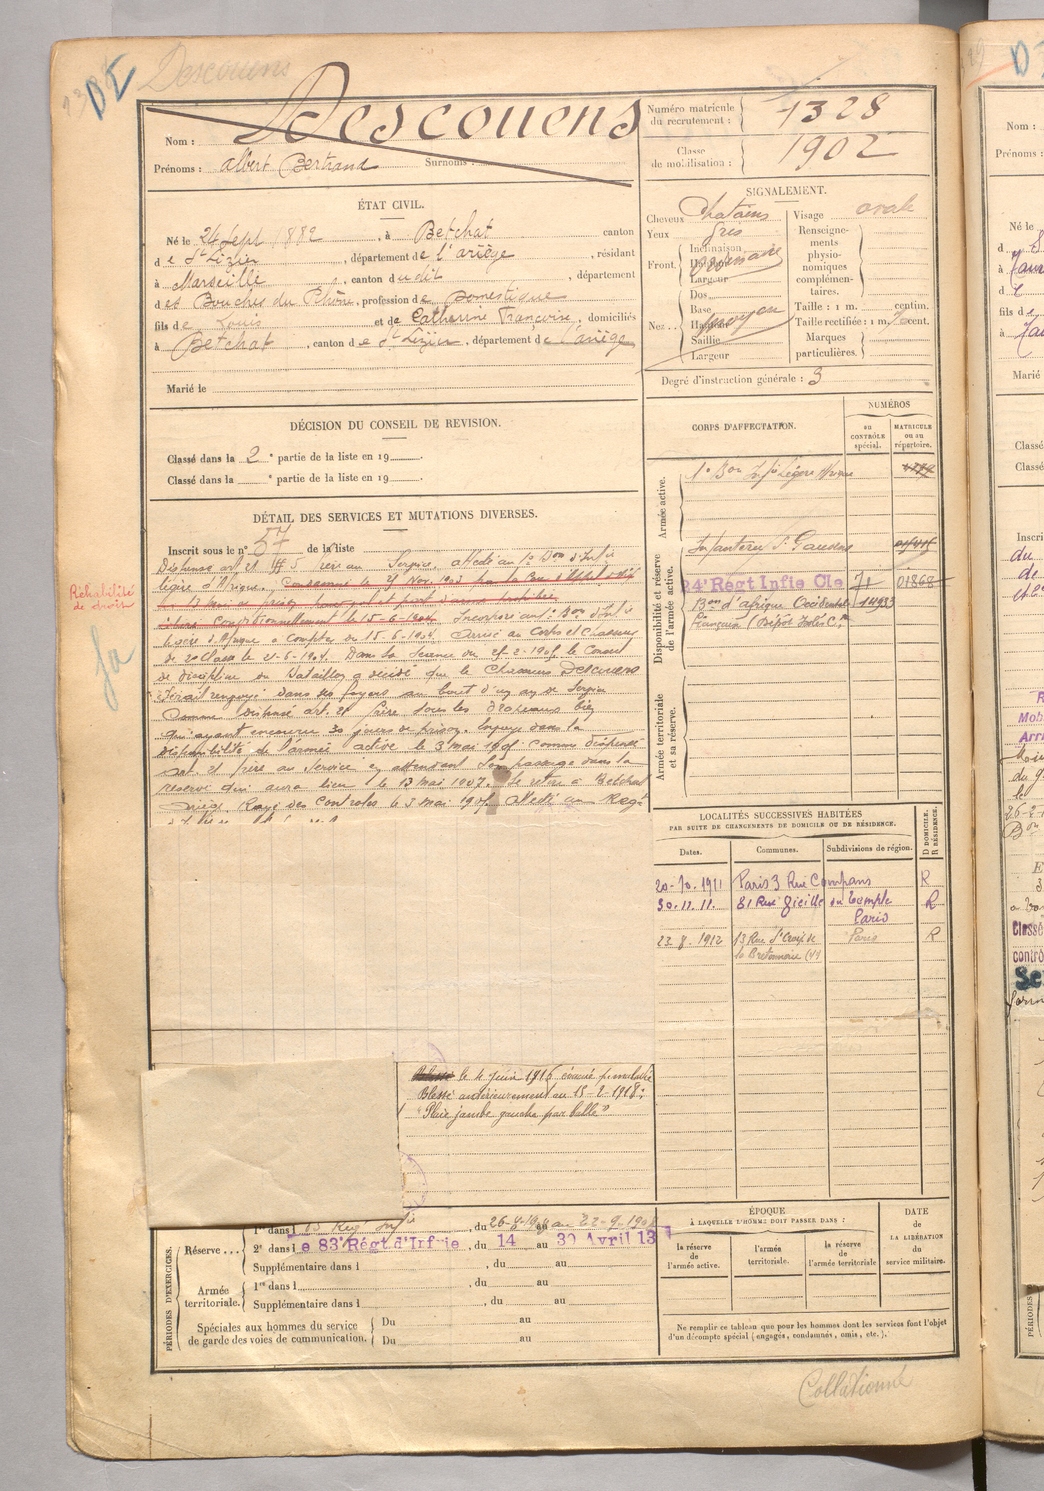 DE
Descouens
Nom : Descouens
Prénoms : Albert Bertrand Surnoms :
Numéro matricule du recrutement : 1328
Classe de mobilisation : 1902
ÉTAT CIVIL.
Né le 24 Sept 1882, à Betchat canton
de St Lizier, département de l'ariège, résidant
à Marseille, canton dudit département
d et Bouches du Rhône, profession de Domestique
fils de Louis et de Catherine Françoise, domiciliés
à Betchat, canton de St Lizier, département de l'ariège
Marié le
SIGNALEMENT.
Cheveux Chatains
Yeux Gris
Front. Inclinaison
Hauteur
Largeur
Nez... Dos
Base moyen
Hauteur
Saillie
Largeur
Visage ovale
Renseignements physionomiques complémentaires.
Taille : 1 m. centim.
Taille rectifiée : 1 m. cent.
Marques particulières.
Degré d'instruction générale : 3
DÉCISION DU CONSEIL DE REVISION.
Classé dans la 2e partie de la liste en 19
Classé dans la e partie de la liste en 19
CORPS D'AFFECTATION.
NUMÉROS
au CONTRÔLE spécial.
MATRICULE ou au répertoire.
Armée active.
1er Bon Infie Légère
Disponibilité et réserve de l'armée active.
Infanterie St Gaudens
24e Régt Infie Cle 71 01868
Bon d'afrique Occidentale 14933
française (Dépôt Isolés C.
Armée territoriale et sa réserve.
DÉTAIL DES SERVICES ET MUTATIONS DIVERSES.
Inscrit sous le n° 57 de la liste
Réhabilité de droit
Dispensé art. 21 frère au Service. affecté au 1er Bon d'Infie
légère d'Afrique. Condamné le 21 Nov. 1903 par la Cour d'Appel
Conditionnellement le 15-6-1904. Incorporé au 1er Bon d'Infie
légère d'Afrique à compter du 15-6-1904. Arrivé au Corps et Chasseur
de 2e Classe le 21-6-1904. Dans sa Séance du le Conseil
de discipline du Bataillon a décidé que le Chasseur Descouens
Serait renvoyé dans ses foyers au bout d'un an de Service
comme Dispensé art. 21 frère sous les Drapeaux bien
qu'ayant encouru 30 jours de prison. Envoyé dans la
disponibilité de l'armée active le 3 mai 1905 comme dispensé
art. 21 frère au Service en attendant son passage dans la
réserve qui aura lieu le 13 mai 1907. Se retire à Betchat
Ariège. Rayé des Contrôles le 3 mai 1905. Affecté au Régt
LOCALITÉS SUCCESSIVES HABITÉES
PAR SUITE DE CHANGEMENTS DE DOMICILE OU DE RÉSIDENCE.
Dates. Communes. Subdivisions de région. D DOMICILE. R RÉSIDENCE.
20-10-1911 Paris 3 Rue Compans R
30.11.11. 81 Rue Vieille du Temple Paris R
23.8.1912 13 Rue St Croix de la Bretonnerie (4) Paris R
Blessé le 4 Juin 1916 évacué p. maladie
Blessé antérieurement au 15-2-1918 :
"Plaie jambe gauche par balle"
PÉRIODES D'EXERCICES.
Réserve ... 1re dans l Rég. Infie, du au 22-9-1908
2e dans le 83e Régt d'Infrie, du 14 au 30 Avril 13
Supplémentaire dans l, du au
Armée territoriale. 1re dans l, du au
Supplémentaire dans l, du au
Spéciales aux hommes du service de garde des voies de communication. Du au
Du au
ÉPOQUE
À LAQUELLE L'HOMME DOIT PASSER DANS :
la réserve de l'armée active.
l'armée territoriale.
la réserve de l'armée territoriale
DATE de LA LIBÉRATION du service militaire.
Ne remplir ce tableau que pour les hommes dont les services font l'objet
d'un décompte spécial (engagés, condamnés, omis, etc.).
Collationné